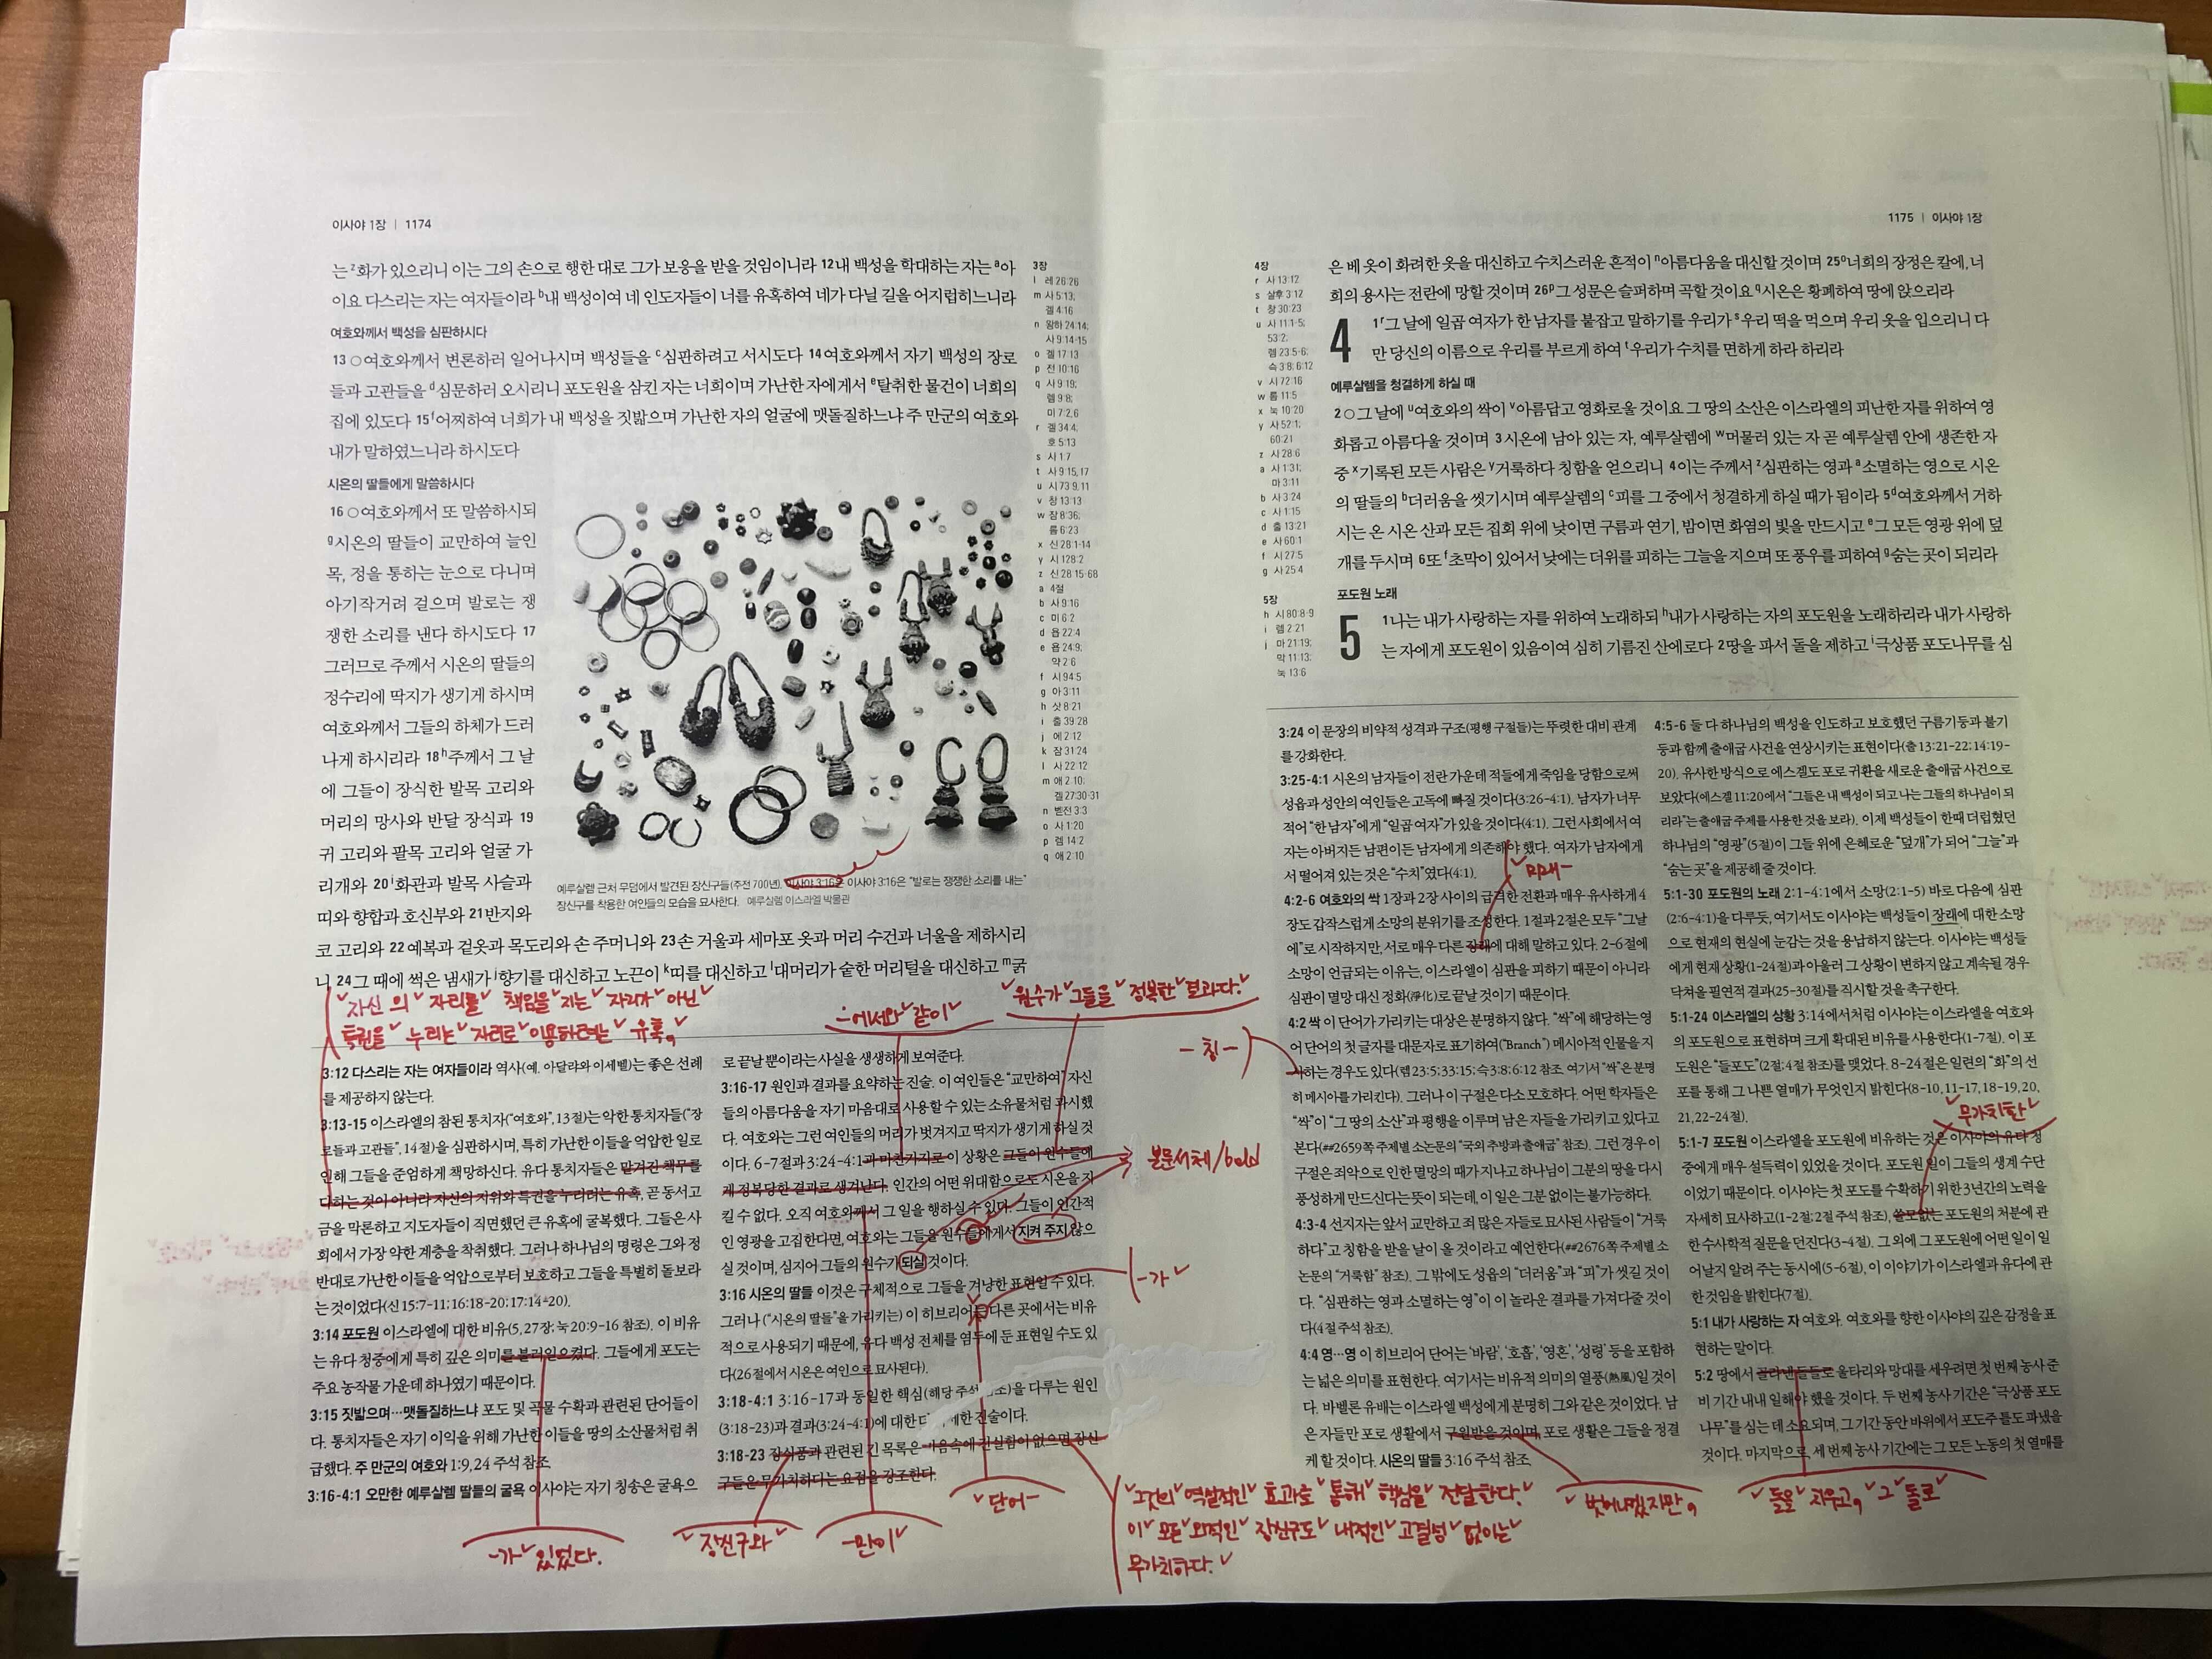 이사야 1장 | 1174
는 z화가 있으리니 이는 그의 손으로 행한 대로 그가 보응을 받을 것임이니라 12내 백성을 학대하는 자는 a아
이요 다스리는 자는 여자들이라 b내 백성이여 네 인도자들이 너를 유혹하여 네가 다닐 길을 어지럽히느니라
여호와께서 백성을 심판하시다
13 ○여호와께서 변론하러 일어나시며 백성들을 c심판하려고 서시도다 14여호와께서 자기 백성의 장로
들과 고관들을 d심문하러 오시리니 포도원을 삼킨 자는 너희이며 가난한 자에게서 e탈취한 물건이 너희의
집에 있도다 15f어찌하여 너희가 내 백성을 짓밟으며 가난한 자의 얼굴에 맷돌질하느냐 주 만군의 여호와
내가 말하였느니라 하시도다
시온의 딸들에게 말씀하시다
16 ○여호와께서 또 말씀하시되
g시온의 딸들이 교만하여 늘인
목, 정을 통하는 눈으로 다니며
아기작거려 걸으며 발로는 쟁
쟁한 소리를 낸다 하시도다 17
그러므로 주께서 시온의 딸들의
정수리에 딱지가 생기게 하시며
여호와께서 그들의 하체가 드러
나게 하시리라 18h주께서 그 날
에 그들이 장식한 발목 고리와
머리의 망사와 반달 장식과 19
귀 고리와 팔목 고리와 얼굴 가
리개와 20i화관과 발목 사슬과
띠와 향합과 호신부와 21반지와
코 고리와 22예복과 겉옷과 목도리와 손 주머니와 23손 거울과 세마포 옷과 머리 수건과 너울을 제하시리
니 24그 때에 썩은 냄새가 j향기를 대신하고 노끈이 k띠를 대신하고 l대머리가 숱한 머리털을 대신하고 m굵
예루살렘 근처 무덤에서 발견된 장신구들(주전 700년). 이사야 3:16은 이사야 3:16은 "발로는 쟁쟁한 소리를 내는"
장신구를 착용한 여인들의 모습을 묘사한다. 예루살렘 이스라엘 박물관
3장
l 레 26:26
m 사 5:13;
겔 4:16
n 왕하 24:14;
사 9:14-15
o 겔 17:13
p 전 10:16
q 사 9:19;
렘 9:8;
미 7:2,6
r 겔 34:4;
호 5:13
s 시 1:7
t 사 9:15,17
u 시 73:9,11
v 창 13:13
w 잠 8:36;
롬 6:23
x 신 28:1-14
y 시 128:2
z 신 28:15-68
a 4절
b 사 9:16
c 미 6:2
d 욥 22:4
e 욥 24:9;
약 2:6
f 시 94:5
g 아 3:11
h 삿 8:21
i 출 39:28
j 에 2:12
k 잠 31:24
l 사 22:12
m 애 2:10;
겔 27:30-31
n 벧전 3:3
o 사 1:20
p 렘 14:2
q 애 2:10
자신의 자리를 책임을 지는 자리가 아닌
특권을 누리는 자리로 이용하려는 유혹,
-에서와 같이
원수가 그들을 정복한 결과다.
3:12 다스리는 자는 여자들이라 역사(예. 아달랴와 이세벨)는 좋은 선례
를 제공하지 않는다.
3:13-15 이스라엘의 참된 통치자("여호와", 13절)는 악한 통치자들("장
로들과 고관들", 14절)을 심판하시며, 특히 가난한 이들을 억압한 일로
인해 그들을 준엄하게 책망하신다. 유다 통치자들은 맡겨진 책무를
다하는 것이 아니라 자신의 지위와 특권을 누리려는 유혹, 곧 동서고
금을 막론하고 지도자들이 직면했던 큰 유혹에 굴복했다. 그들은 사
회에서 가장 약한 계층을 착취했다. 그러나 하나님의 명령은 그와 정
반대로 가난한 이들을 억압으로부터 보호하고 그들을 특별히 돌보라
는 것이었다(신 15:7-11; 16:18-20; 17:14-20).
3:14 포도원 이스라엘에 대한 비유(5, 27장; 눅 20:9-16 참조). 이 비유
는 유다 청중에게 특히 깊은 의미를 불러일으켰다. 그들에게 포도는
주요 농작물 가운데 하나였기 때문이다.
3:15 짓밟으며…맷돌질하느냐 포도 및 곡물 수확과 관련된 단어들이
다. 통치자들은 자기 이익을 위해 가난한 이들을 땅의 소산물처럼 취
급했다. 주 만군의 여호와 1:9, 24 주석 참조.
3:16-4:1 오만한 예루살렘 딸들의 굴욕 이사야는 자기 칭송은 굴욕으
로 끝날 뿐이라는 사실을 생생하게 보여준다.
3:16-17 원인과 결과를 요약하는 진술. 이 여인들은 "교만하여" 자신
들의 아름다움을 자기 마음대로 사용할 수 있는 소유물처럼 과시했
다. 여호와는 그런 여인들의 머리가 벗겨지고 딱지가 생기게 하실 것
이다. 6-7절과 3:24-4:1과 마찬가지로 이 상황은 그들이 원수들에
게 정복당한 결과로 생겨난다. 인간의 어떤 위대함으로도 시온을 지
킬 수 없다. 오직 여호와께서 그 일을 행하실 수 있다. 그들이 인간적
인 영광을 고집한다면, 여호와는 그들을 원수들에게서 지켜 주지 않으
실 것이며, 심지어 그들의 원수가 되실 것이다.
3:16 시온의 딸들 이것은 구체적으로 그들을 겨냥한 표현일 수 있다.
그러나 ("시온의 딸들"을 가리키는) 이 히브리어는 다른 곳에서는 비유
적으로 사용되기 때문에, 유다 백성 전체를 염두에 둔 표현일 수도 있
다(26절에서 시온은 여인으로 묘사된다).
3:18-4:1 3:16-17과 동일한 핵심(해당 주석 참조)을 다루는 원인
(3:18-23)과 결과(3:24-4:1)에 대한 한 진술이다.
3:18-23 장식품과 관련된 긴 목록은 마음속에 진실함이 없으면 장신
구들은 무가치하다는 요점을 강조한다.
본문서체/bold
-가
-가 있었다.
장신구와
-만이
단어-
그것의 역설적인 효과를 통해 핵심을 전달한다.
이 모든 외적인 장신구도 내적인 고결성 없이는
무가치하다.
1175 | 이사야 1장
4장
r 사 13:12
s 살후 3:12
t 창 30:23
u 사 11:1-5;
53:2;
렘 23:5-6;
슥 3:8; 6:12
v 시 72:16
w 롬 11:5
x 눅 10:20
y 사 52:1;
60:21
z 사 28:6
a 사 1:31;
마 3:11
b 사 3:24
c 사 1:15
d 출 13:21
e 사 60:1
f 시 27:5
g 사 25:4
5장
h 시 80:8-9
i 렘 2:21
j 마 21:19;
막 11:13;
눅 13:6
은 베 옷이 화려한 옷을 대신하고 수치스러운 흔적이 n아름다움을 대신할 것이며 25o너희의 장정은 칼에, 너
희의 용사는 전란에 망할 것이며 26p그 성문은 슬퍼하며 곡할 것이요 q시온은 황폐하여 땅에 앉으리라
4 1r그 날에 일곱 여자가 한 남자를 붙잡고 말하기를 우리가 s우리 떡을 먹으며 우리 옷을 입으리니 다
만 당신의 이름으로 우리를 부르게 하여 t우리가 수치를 면하게 하라 하리라
예루살렘을 청결하게 하실 때
2 ○그 날에 u여호와의 싹이 v아름답고 영화로울 것이요 그 땅의 소산은 이스라엘의 피난한 자를 위하여 영
화롭고 아름다울 것이며 3 시온에 남아 있는 자, 예루살렘에 w머물러 있는 자 곧 예루살렘 안에 생존한 자
중 x기록된 모든 사람은 y거룩하다 칭함을 얻으리니 4이는 주께서 z심판하는 영과 a소멸하는 영으로 시온
의 딸들의 b더러움을 씻기시며 예루살렘의 c피를 그 중에서 청결하게 하실 때가 됨이라 5d여호와께서 거하
시는 온 시온 산과 모든 집회 위에 낮이면 구름과 연기, 밤이면 화염의 빛을 만드시고 e그 모든 영광 위에 덮
개를 두시며 6또 f초막이 있어서 낮에는 더위를 피하는 그늘을 지으며 또 풍우를 피하여 g숨는 곳이 되리라
포도원 노래
5 1나는 내가 사랑하는 자를 위하여 노래하되 h내가 사랑하는 자의 포도원을 노래하리라 내가 사랑하
는 자에게 포도원이 있음이여 심히 기름진 산에로다 2땅을 파서 돌을 제하고 i극상품 포도나무를 심
3:24 이 문장의 비약적 성격과 구조(평행 구절들)는 뚜렷한 대비 관계
를 강화한다.
3:25-4:1 시온의 남자들이 전란 가운데 적들에게 죽임을 당함으로써
성읍과 성안의 여인들은 고독에 빠질 것이다(3:26-4:1). 남자가 너무
적어 "한 남자"에게 "일곱 여자"가 있을 것이다(4:1). 그런 사회에서 여
자는 아버지든 남편이든 남자에게 의존해야 했다. 여자가 남자에게
서 떨어져 있는 것은 "수치"였다(4:1).
미래-
4:2-6 여호와의 싹 1장과 2장 사이의 급격한 전환과 매우 유사하게 4
장도 갑작스럽게 소망의 분위기를 조성한다. 1절과 2절은 모두 "그날
에"로 시작하지만, 서로 매우 다른 장래에 대해 말하고 있다. 2-6절에
소망이 언급되는 이유는, 이스라엘이 심판을 피하기 때문이 아니라
심판이 멸망 대신 정화(淨化)로 끝날 것이기 때문이다.
4:2 싹 이 단어가 가리키는 대상은 분명하지 않다. "싹"에 해당하는 영
어 단어의 첫 글자를 대문자로 표기하여("Branch") 메시아적 인물을 지
-칭-
하는 경우도 있다(렘 23:5; 33:15; 슥 3:8; 6:12 참조. 여기서 "싹"은 분명
히 메시아를 가리킨다). 그러나 이 구절은 다소 모호하다. 어떤 학자들은
"싹"이 "그 땅의 소산"과 평행을 이루며 남은 자들을 가리키고 있다고
본다(##2659쪽 주제별 소논문의 "국외 추방과 출애굽" 참조). 그런 경우 이
구절은 죄악으로 인한 멸망의 때가 지나고 하나님이 그분의 땅을 다시
풍성하게 만드신다는 뜻이 되는데, 이 일은 그분 없이는 불가능하다.
4:3-4 선지자는 앞서 교만하고 죄 많은 자들로 묘사된 사람들이 "거룩
하다"고 칭함을 받을 날이 올 것이라고 예언한다(##2676쪽 주제별 소
논문의 "거룩함" 참조). 그 밖에도 성읍의 "더러움"과 "피"가 씻길 것이
다. "심판하는 영과 소멸하는 영"이 이 놀라운 결과를 가져다줄 것이
다(4절 주석 참조).
4:4 영…영 이 히브리어 단어는 '바람', '호흡', '영혼', '성령' 등을 포함하
는 넓은 의미를 표현한다. 여기서는 비유적 의미의 열풍(熱風)일 것이
다. 바벨론 유배는 이스라엘 백성에게 분명히 그와 같은 것이었다. 남
은 자들만 포로 생활에서 구원받은 것이며, 포로 생활은 그들을 정결
케 할 것이다. 시온의 딸들 3:16 주석 참조.
벗어나겠지만,
4:5-6 둘 다 하나님의 백성을 인도하고 보호했던 구름기둥과 불기
둥과 함께 출애굽 사건을 연상시키는 표현이다(출 13:21-22; 14:19-
20). 유사한 방식으로 에스겔도 포로 귀환을 새로운 출애굽 사건으로
보았다(에스겔 11:20에서 "그들은 내 백성이 되고 나는 그들의 하나님이 되
리라"는 출애굽 주제를 사용한 것을 보라). 이제 백성들이 한때 더럽혔던
하나님의 "영광"(5절)이 그들 위에 은혜로운 "덮개"가 되어 "그늘"과
"숨는 곳"을 제공해 줄 것이다.
5:1-30 포도원의 노래 2:1-4:1에서 소망(2:1-5) 바로 다음에 심판
(2:6-4:1)을 다루듯, 여기서도 이사야는 백성들이 장래에 대한 소망
으로 현재의 현실에 눈감는 것을 용납하지 않는다. 이사야는 백성들
에게 현재 상황(1-24절)과 아울러 그 상황이 변하지 않고 계속될 경우
닥쳐올 필연적 결과(25-30절)를 직시할 것을 촉구한다.
5:1-24 이스라엘의 상황 3:14에서처럼 이사야는 이스라엘을 여호와
의 포도원으로 표현하며 크게 확대된 비유를 사용한다(1-7절). 이 포
도원은 "들포도"(2절; 4절 참조)를 맺었다. 8-24절은 일련의 "화"의 선
포를 통해 그 나쁜 열매가 무엇인지 밝힌다(8-10, 11-17, 18-19, 20,
21, 22-24절).
무가치한
5:1-7 포도원 이스라엘을 포도원에 비유하는 것은 이사야의 유다 청
중에게 매우 설득력이 있었을 것이다. 포도원 일이 그들의 생계 수단
이었기 때문이다. 이사야는 첫 포도를 수확하기 위한 3년간의 노력을
자세히 묘사하고(1-2절; 2절 주석 참조), 쓸모없는 포도원의 처분에 관
한 수사학적 질문을 던진다(3-4절). 그 외에 그 포도원에 어떤 일이 일
어날지 알려 주는 동시에(5-6절), 이 이야기가 이스라엘과 유다에 관
한 것임을 밝힌다(7절).
5:1 내가 사랑하는 자 여호와. 여호와를 향한 이사야의 깊은 감정을 표
현하는 말이다.
5:2 땅에서 골라낸 돌들로 울타리와 망대를 세우려면 첫 번째 농사 준
비 기간 내내 일해야 했을 것이다. 두 번째 농사 기간은 "극상품 포도
나무"를 심는 데 소요되며, 그 기간 동안 바위에서 포도주 틀도 파냈을
것이다. 마지막으로, 세 번째 농사 기간에는 그 모든 노동의 첫 열매를
돌을 치우고, 그 돌로